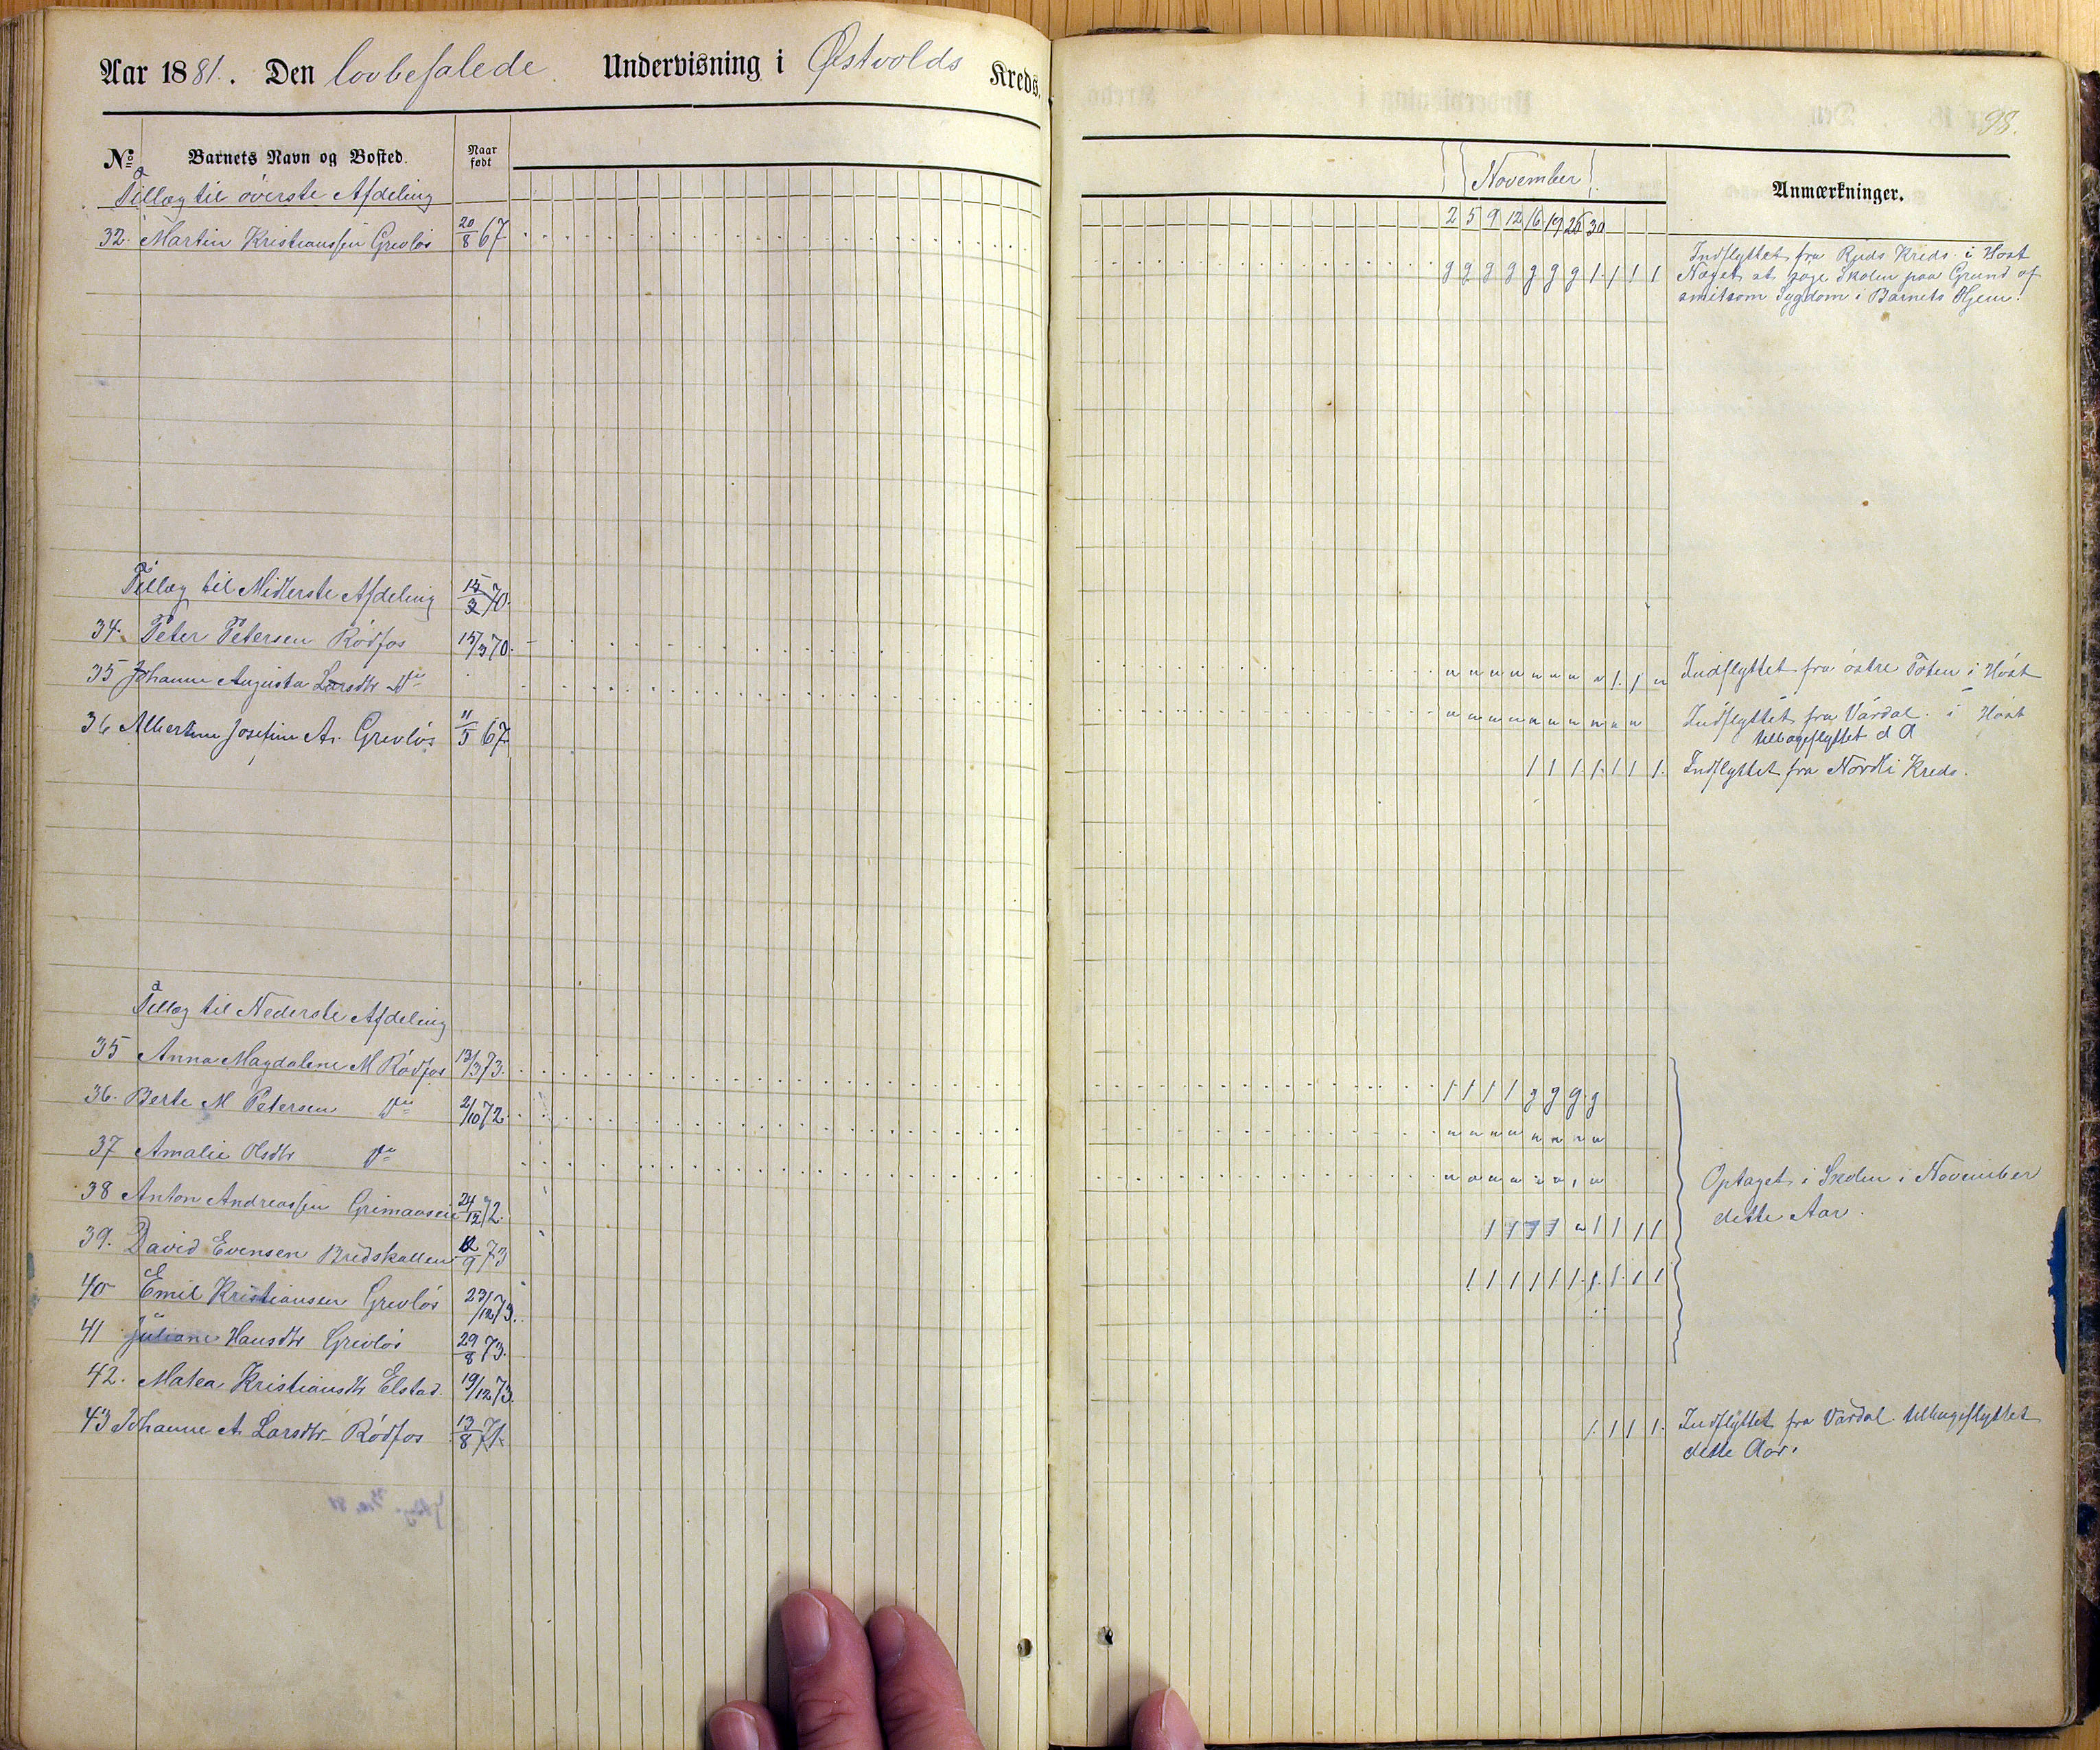 Aar 1881. Den lovbefalede Undervisning i Østvolds Kreds.
98.
No Barnets Navn og Bosted. Naar født November Anmærkninger.
2 5 9 12 16 19 26 30
Tillæg til øverste Afdeling
32. Martin Kristianssen Grevløs 20/8 67 g g g g g g g 1 1 1 1
Indflyttet fra Ruds Kreds i Høst
Nægtet at søge Skolen paa Grund af
smitsom Sygdom i Barnets Hjem.
Tillæg til Midterste Afdeling
34. Peter Petersen Rødfos 15/3 70. Indflyttet fra østre Toten i Høst
35 Johanne Augusta Larsdtr Do Indflyttet fra Vardal i Høst
tilbageflyttet d A
36 Albertine Josefine A. Grevløs 11/5 67 1 1 1 1 1 1 1 Indflyttet fra Nordli Kreds.
Tillæg til Nederste Afdeling
35 Anna Magdalene M Rødfos 13/3 73. 1 1 1 1 g g g g
36. Berte M Petersen Do 2/10 72.
37 Amalie Olsdtr Do
Optaget i Skolen i November
dette Aar.
38 Anton Andreassen 24/12 72.
39. David Evensen Bredskallen 12/9 73
40 Emil Kristiansen Grevløs 23/12 73.
41 Juliane Hansdtr Grevløs 29/8 73.
42. Matea Kristiansdtr Elstad. 19/12 73.
43 Johanne A. Larsdtr Rødfos 13/8 71. 1 1 1 1. Indflyttet fra Vardal tilbageflyttet
dette Aar.